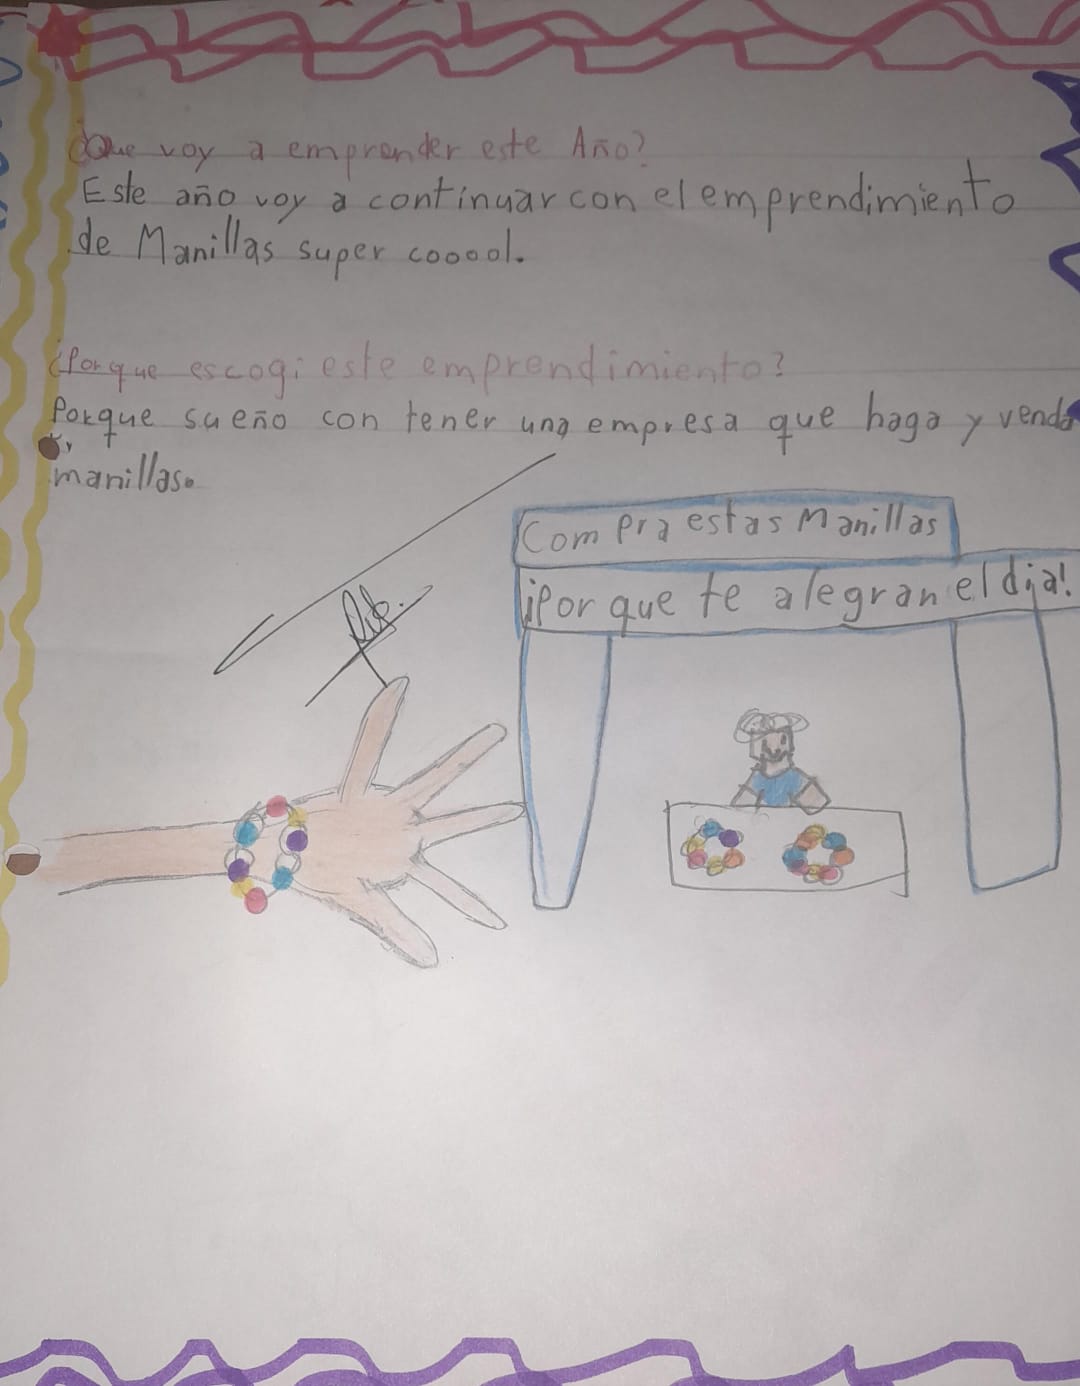 ¿Que voy a emprender este Año?
Este año voy a continuar con el emprendimiento
de Manillas super cooool.
¿Porque escogi este emprendimiento?
Porque sueño con tener una empresa que haga y venda
manillas.
Compra estas Manillas
¡¡Por que te alegran el dia!